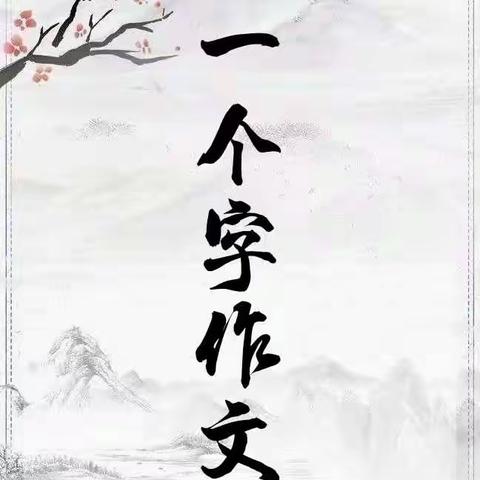 一个字作文